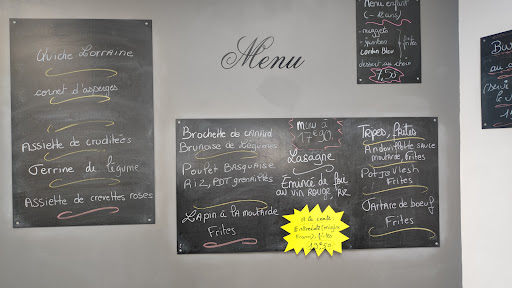 Quiche Lorraine
cornet d'asperges
Assiette de crudités
Terrine du légume
Assiette de crevettes roses
Menu
Menu enfant
(- 12 ans)
- nuggets
- jambon
cordon Bleu
frites
dessert au choix
7,50
Brochette de canard
Brunoise de légumes
Poulet Basquaise
Riz, PDT grenailles
Lapin à la moutarde
Frites
Menu à
17€90
Lasagne
Émincé de
au vin rouge, Riz
A la carte
Entrecôte
frites
19,50
Tapes, frites
Andouillette sauce
moutarde, frites
Potjevlesh
Frites
Tartare de boeuf
Frites